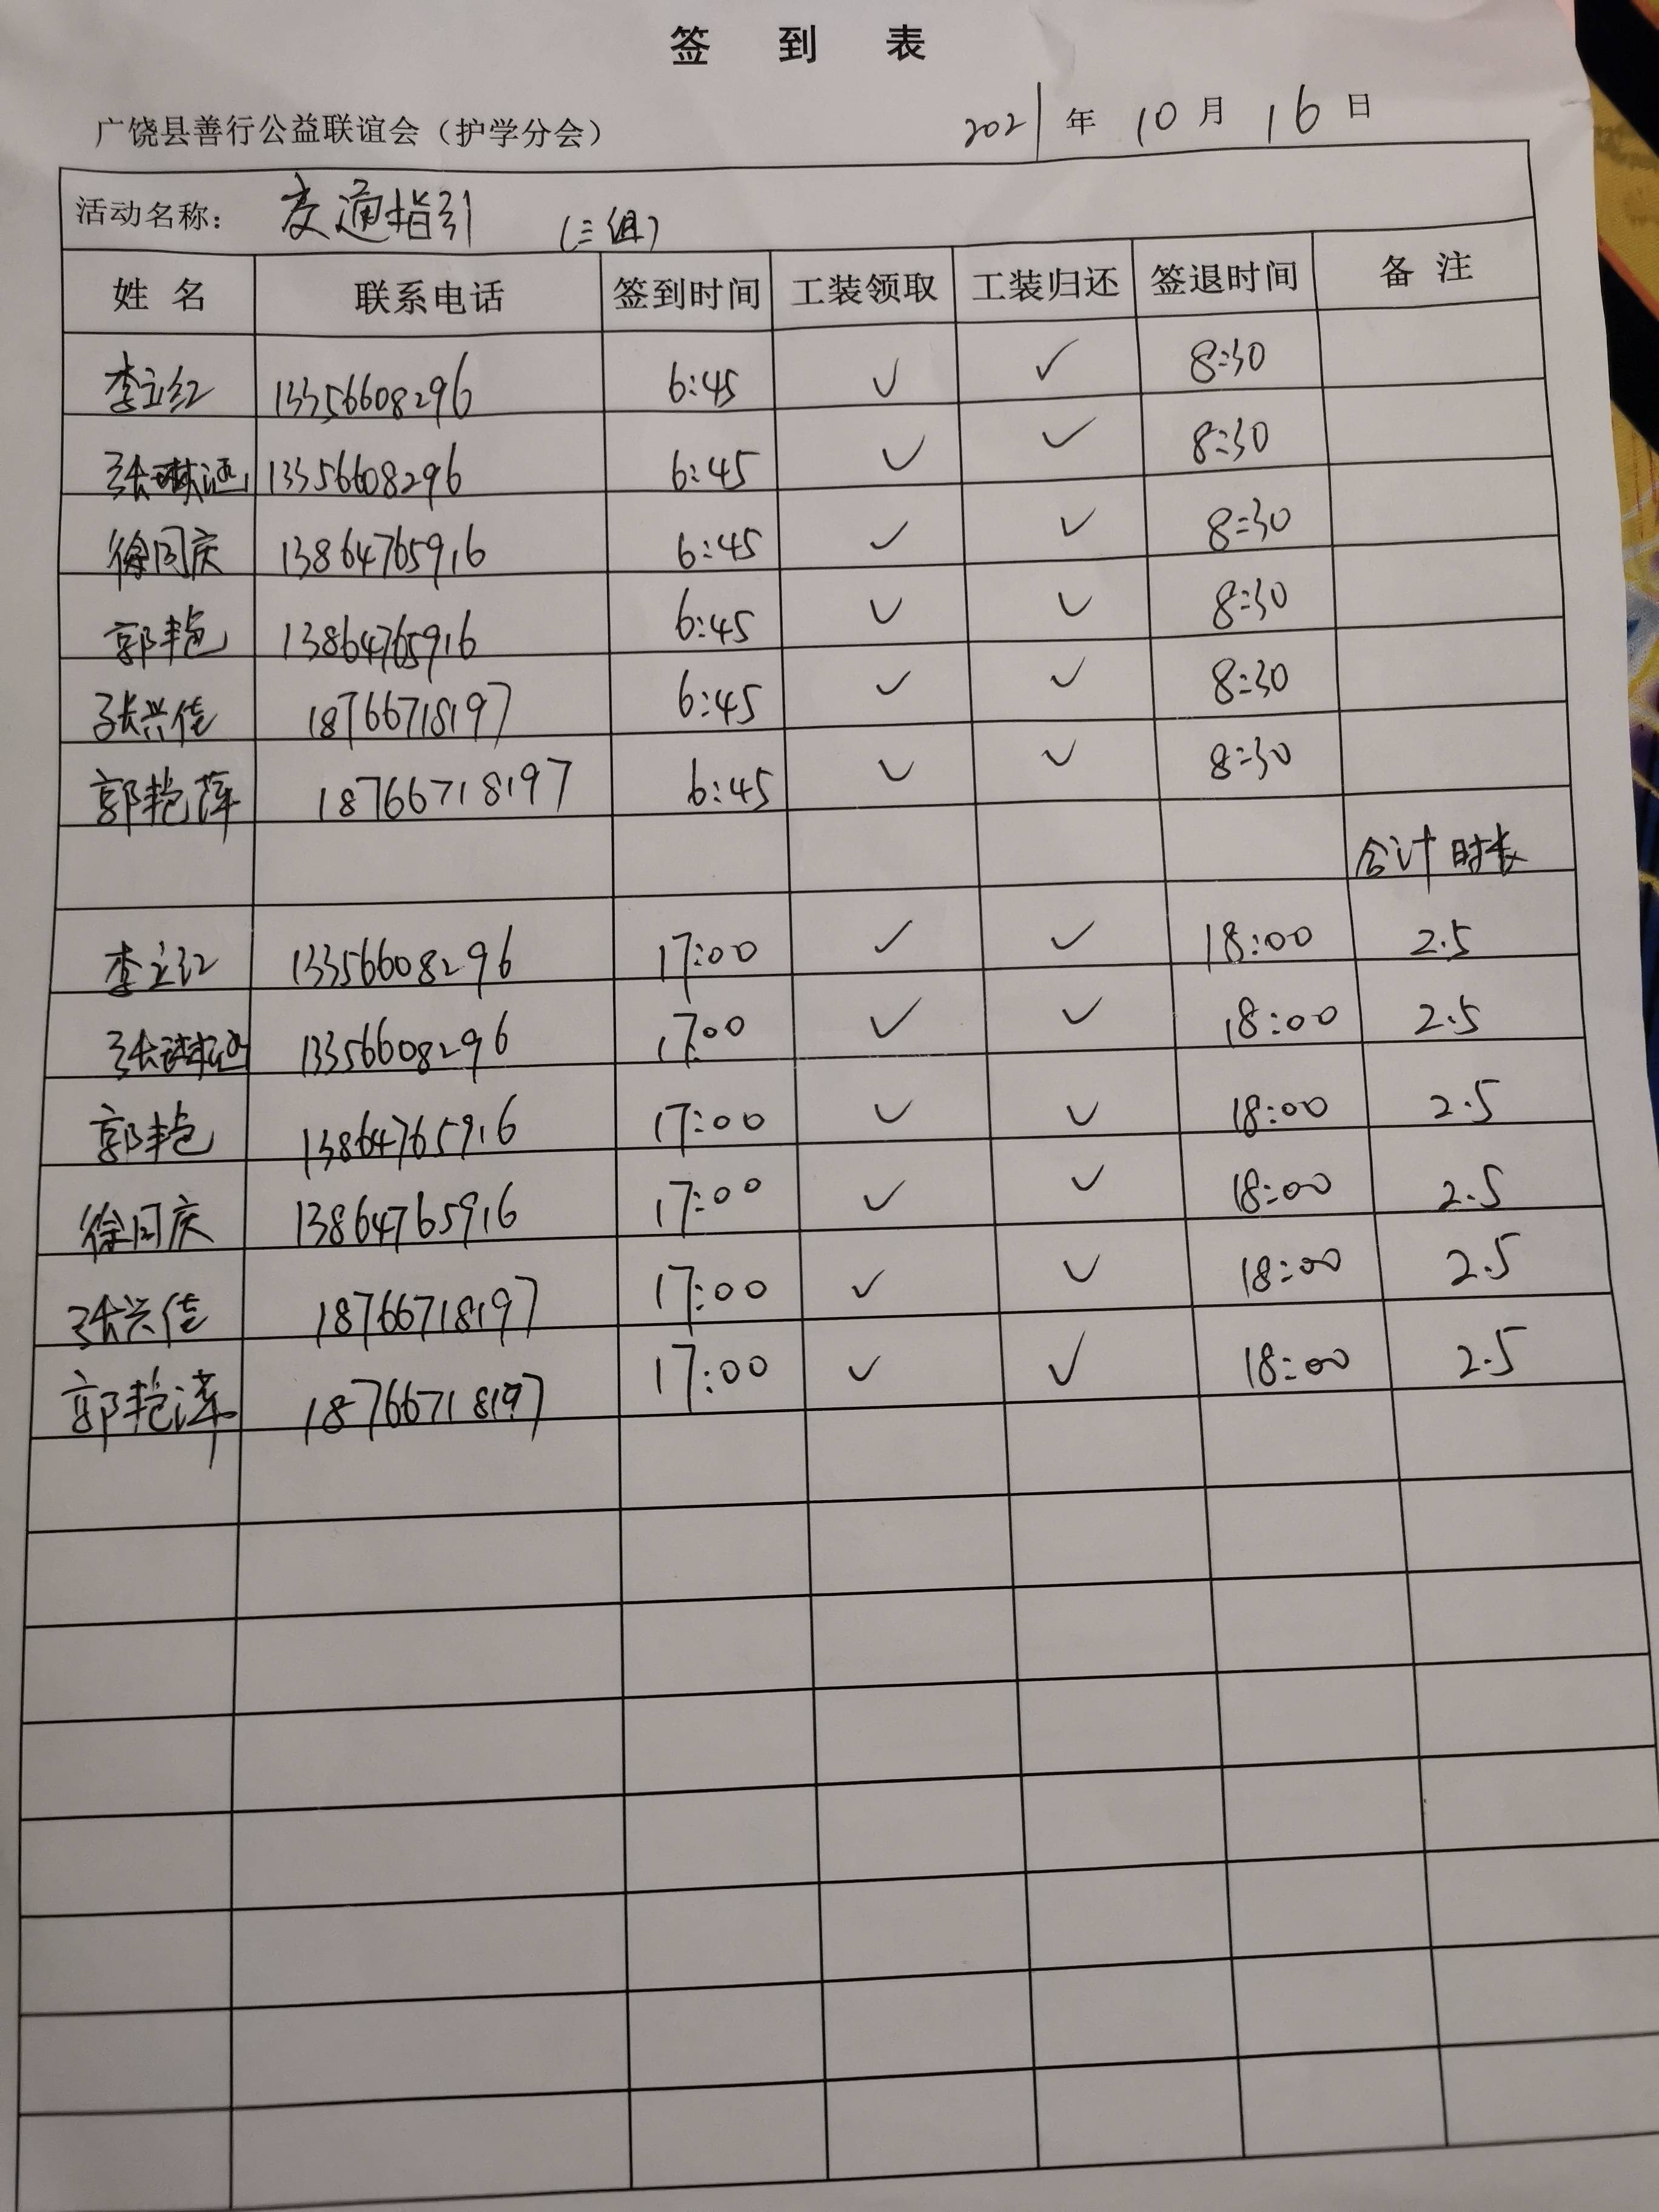 签 到 表
广饶县善行公益联谊会（护学分会） 2021年 10月 16日
活动名称： 交通指引 （三组）
姓 名 联系电话 签到时间 工装领取 工装归还 签退时间 备 注
李立红 13356608296 6:45 ✓ ✓ 8:30
张琳涵 13356608296 6:45 ✓ ✓ 8:30
徐同庆 13864765916 6:45 ✓ ✓ 8:30
郭艳 13864765916 6:45 ✓ ✓ 8:30
张兴佳 18766718197 6:45 ✓ ✓ 8:30
郭艳萍 18766718197 6:45 ✓ ✓ 8:30
合计时长
李立红 13356608296 17:00 ✓ ✓ 18:00 2.5
张琳涵 13356608296 17:00 ✓ ✓ 18:00 2.5
郭艳 13864765916 17:00 ✓ ✓ 18:00 2.5
徐同庆 13864765916 17:00 ✓ ✓ 18:00 2.5
张兴佳 18766718197 17:00 ✓ ✓ 18:00 2.5
郭艳萍 18766718197 17:00 ✓ ✓ 18:00 2.5